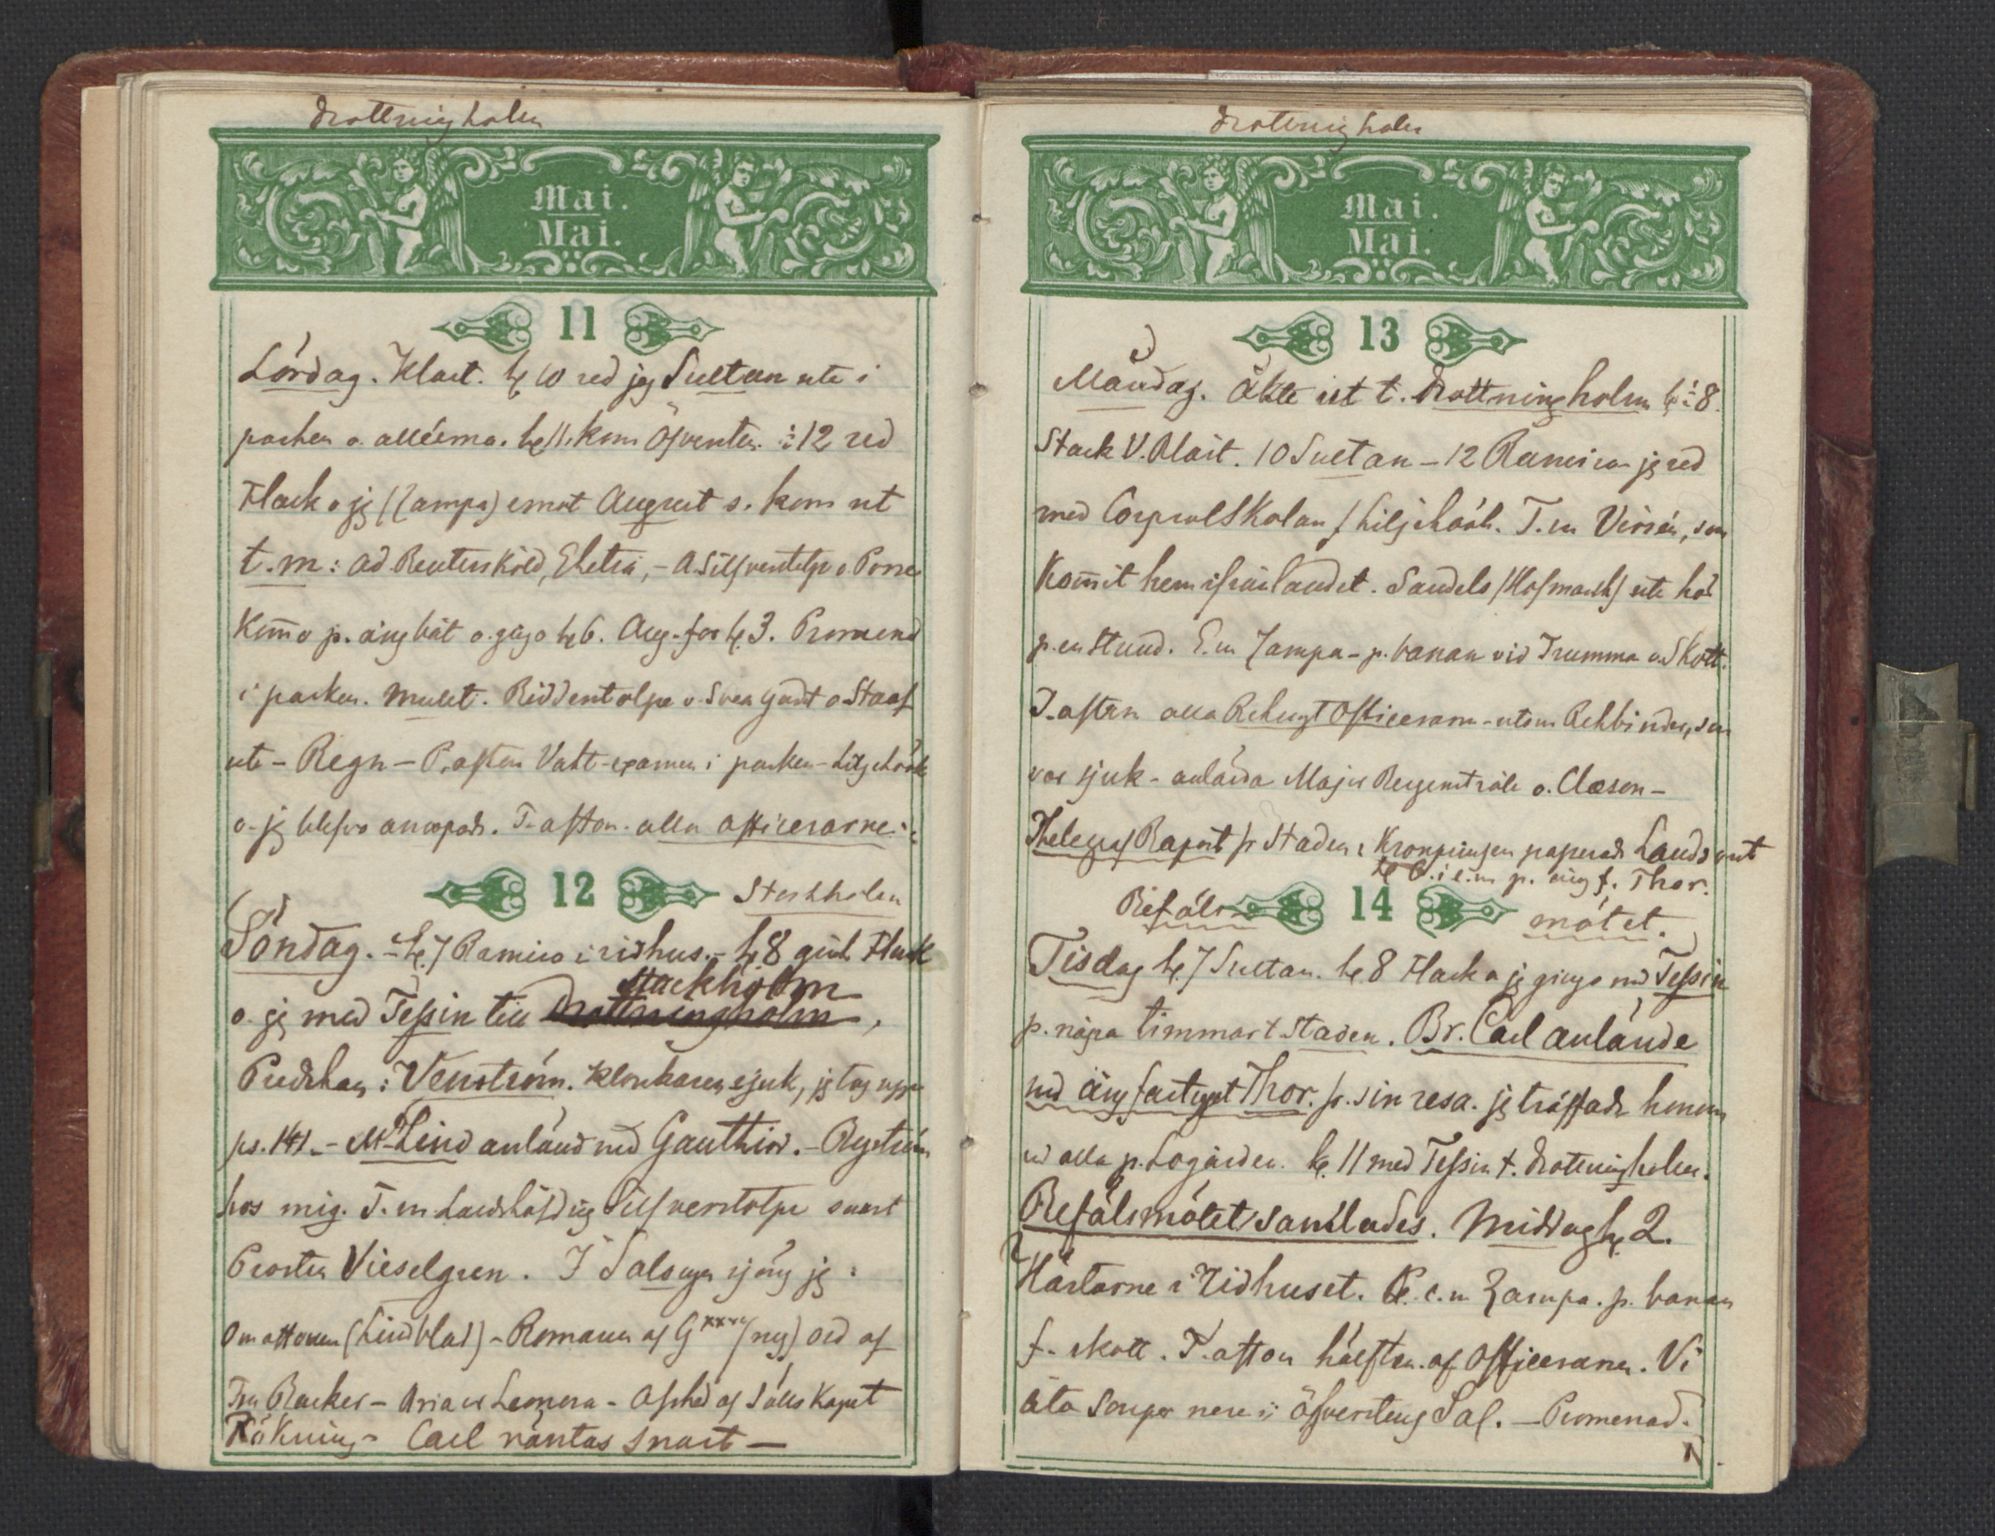 Drottningholm
Mai.
Mai.
11
Lördag. Klart. kl 10 red jag Sultan ute i
parken o. alléerna. kl 11. kom Öfversten. 12 red
Flach o jg (Zampa) emot August s. kom ut
t. m: Ad Reuterskiöld, - A Silfverstolpe o. Posse
Kommo p. ångbåt o. gingo kl 6. Aug. for kl. 3. Promenad
i parken. Mulet. Ridderstolpe o. Svea gard o Staaf
ute - Regn - P. afton Vakt-examen i parken - Liljehöök
o. jg blefvo anropade. T. afton. alla officerarne
12 Stockholm
Söndag. - kl. 7 Ramiro i ridhus. - kl 8 gick Flach
Stockholm
o. jg med Tessin till Drottningholm,
Predikan: Venström. Klockaren sjuk, jg tog upp
ps. 141. - M. Lind anländ med Gauthiod. - Byström
hos mig. F. m. Landshöfding Silfverstolpe samt
Prosten Vieselgren. I Salongen sjöng jg:
Om aftonen (Lindblad) - Romans af G (ny) ord af
Fru Backer - Aria ur Leonora - Afsked af Sälls Kapet
Rökning - Carl väntas snart -
Drottningholm
Mai.
Mai.
13
Måndag. Åkte ut t. Drottningholm kl 8.
Stark V. Blåst. 10 Sultan - 12 Ramiro jg red
med Corpralskolan f. Liljehöök. F. m Virsén, som
Kommit hem ifrån landet. Sandels (Hofmarsk) ute här
p. en stund. E. m Zampa - p. banan vid Trumma och Skott.
T. afton alla Rekryt Officerarn - utom Rehbinder, som
var sjuk - anlände Major Bergenstråle o. Clæson -
Thelegraf Raport fr Staden: Kronprinsen passerade Landsort
kl 6. i e. m p. ång f. Thor.
Befäls 14 mötet.
Tisdag kl 7 Sultan. kl 8 Flach o jg gingo med Tessin
p. några timmar t Staden. Br. Carl anlände
med ångfartyget Thor. fr. sin resa. jg träffade honom
o alla p. Logården. kl. 11 med Tessin t. Drottningholm.
Befälsmötet samlades. Middag kl. 2.
Hästarne i Ridhuset. kl. e. m Zampa. p. banan
f. skott. T. afton hälften af Officerarne. Vi
äta Souper nere i öfverstens Sal. - Promenad.